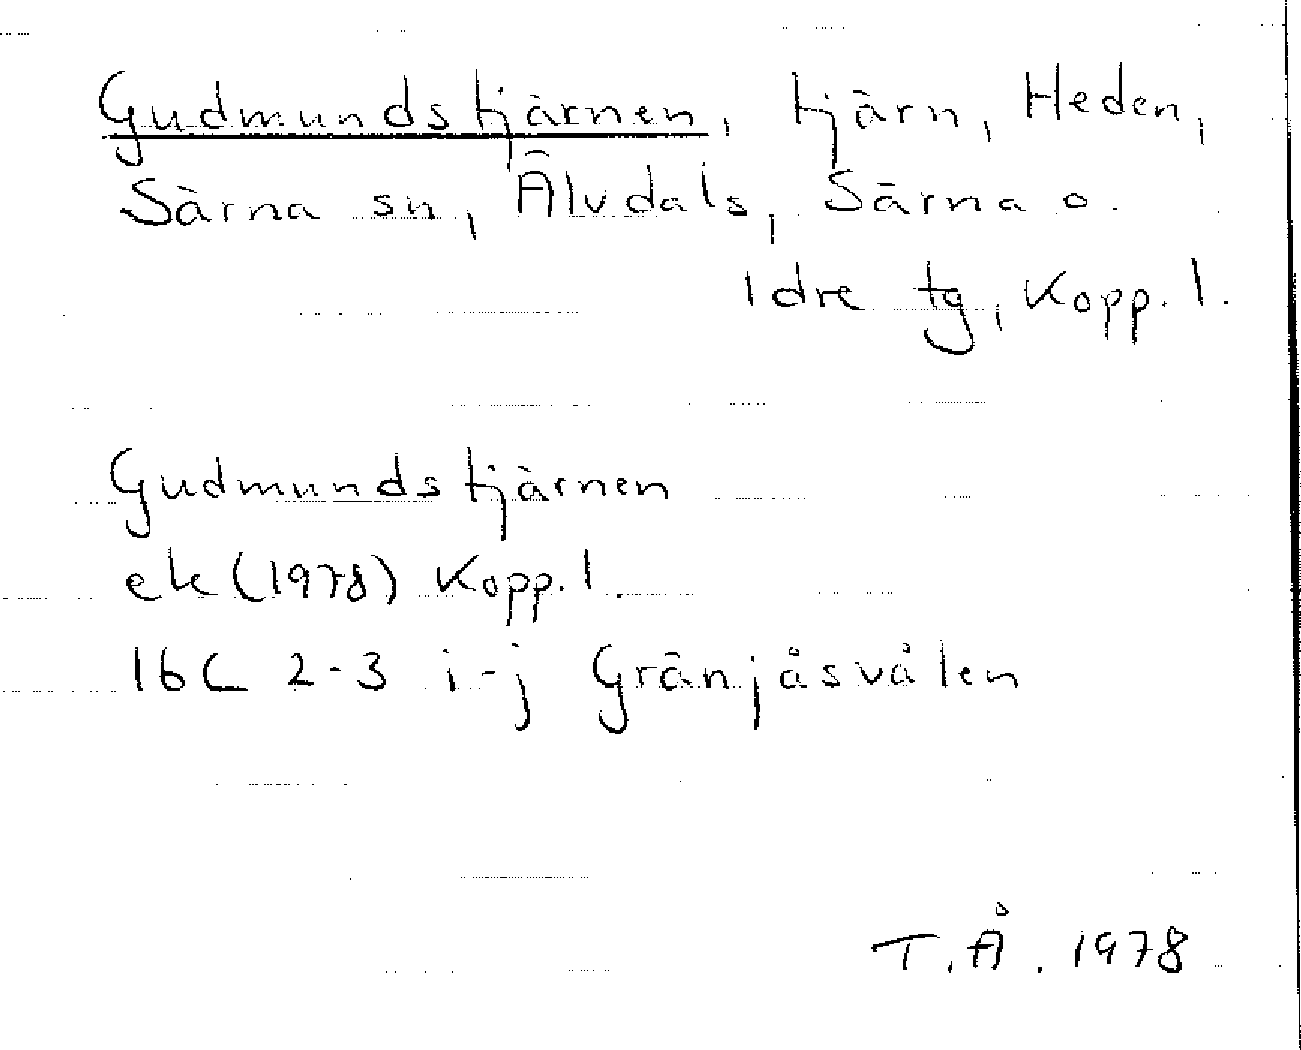 Gudmundstjärnen, tjärn, Heden,
Särna sn, Älvdals, Särna o.
Idre tg, Kopp. l.
Gudmundstjärnen
ek (1978) Kopp. l.
16C 2-3 i-j Gränjåsvålen
T.Å. 1978